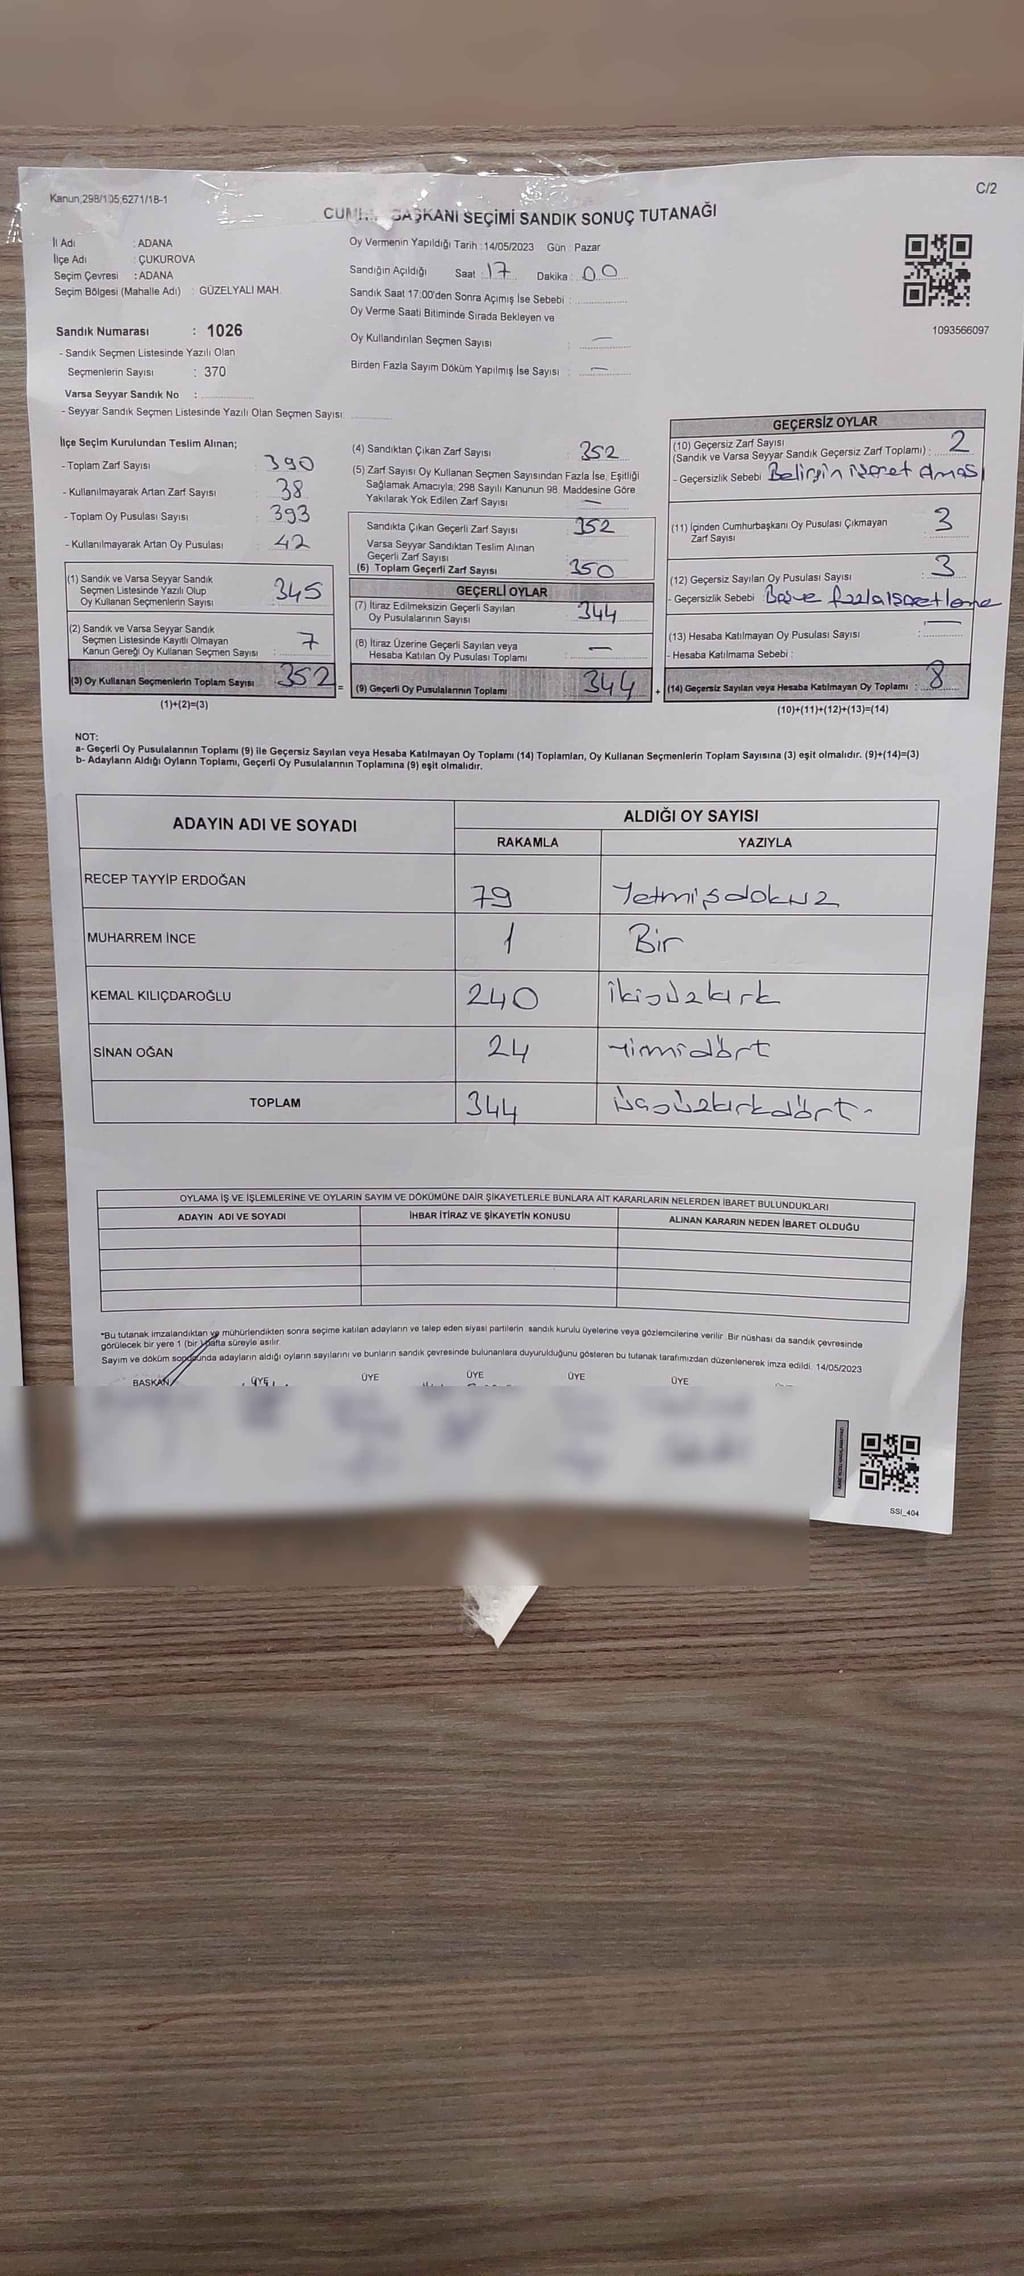 Kanun,298/105,6271/18-1
C/2
BAŞKANI SEÇİMİ SANDIK SONUÇ TUTANAĞI
İl Adı : ADANA
İlçe Adı : ÇUKUROVA
Seçim Çevresi : ADANA
Seçim Bölgesi (Mahalle Adı) : GÜZELYALI MAH.
Sandık Numarası : 1026
- Sandık Seçmen Listesinde Yazılı Olan
Seçmenlerin Sayısı : 370
Varsa Seyyar Sandık No :
- Seyyar Sandık Seçmen Listesinde Yazılı Olan Seçmen Sayısı:
Oy Vermenin Yapıldığı Tarih : 14/05/2023 Gün : Pazar
Sandığın Açıldığı Saat : 17 Dakika : 00
Sandık Saat 17:00'den Sonra Açımış İse Sebebi :
Oy Verme Saati Bitiminde Sırada Bekleyen ve
Oy Kullandırılan Seçmen Sayısı : —
Birden Fazla Sayım Döküm Yapılmış İse Sayısı : —
1093566097
İlçe Seçim Kurulundan Teslim Alınan;
- Toplam Zarf Sayısı : 390
- Kullanılmayarak Artan Zarf Sayısı : 38
- Toplam Oy Pusulası Sayısı : 393
- Kullanılmayarak Artan Oy Pusulası : 42
(1) Sandık ve Varsa Seyyar Sandık
Seçmen Listesinde Yazılı Olup
Oy Kullanan Seçmenlerin Sayısı : 345
(2) Sandık ve Varsa Seyyar Sandık
Seçmen Listesinde Kayıtlı Olmayan
Kanun Gereği Oy Kullanan Seçmen Sayısı : 7
(3) Oy Kullanan Seçmenlerin Toplam Sayısı : 352 =
(1)+(2)=(3)
(4) Sandıktan Çıkan Zarf Sayısı : 352
(5) Zarf Sayısı Oy Kullanan Seçmen Sayısından Fazla İse, Eşitliği
Sağlamak Amacıyla, 298 Sayılı Kanunun 98. Maddesine Göre
Yakılarak Yok Edilen Zarf Sayısı : —
Sandıkta Çıkan Geçerli Zarf Sayısı : 352
Varsa Seyyar Sandıktan Teslim Alınan
Geçerli Zarf Sayısı :
(6) Toplam Geçerli Zarf Sayısı : 350
GEÇERLİ OYLAR
(7) İtiraz Edilmeksizin Geçerli Sayılan
Oy Pusulalarının Sayısı : 344
(8) İtiraz Üzerine Geçerli Sayılan veya
Hesaba Katılan Oy Pusulası Toplamı : —
(9) Geçerli Oy Pusulalarının Toplamı : 344 +
GEÇERSİZ OYLAR
(10) Geçersiz Zarf Sayısı
(Sandık ve Varsa Seyyar Sandık Geçersiz Zarf Toplamı) : 2
- Geçersizlik Sebebi : Belirgin işaret olması
(11) İçinden Cumhurbaşkanı Oy Pusulası Çıkmayan
Zarf Sayısı : 3
(12) Geçersiz Sayılan Oy Pusulası Sayısı : 3
- Geçersizlik Sebebi : Boş ve fazla işaretleme
(13) Hesaba Katılmayan Oy Pusulası Sayısı : —
- Hesaba Katılmama Sebebi :
(14) Geçersiz Sayılan veya Hesaba Katılmayan Oy Toplamı : 8
(10)+(11)+(12)+(13)=(14)
NOT:
a- Geçerli Oy Pusulalarının Toplamı (9) ile Geçersiz Sayılan veya Hesaba Katılmayan Oy Toplamı (14) Toplamları, Oy Kullanan Seçmenlerin Toplam Sayısına (3) eşit olmalıdır. (9)+(14)=(3)
b- Adayların Aldığı Oyların Toplamı, Geçerli Oy Pusulalarının Toplamına (9) eşit olmalıdır.
ADAYIN ADI VE SOYADI ALDIĞI OY SAYISI
RAKAMLA YAZIYLA
RECEP TAYYİP ERDOĞAN 79 Yetmişdokuz
MUHARREM İNCE 1 Bir
KEMAL KILIÇDAROĞLU 240 ikiyüzkırk
SİNAN OĞAN 24 Yirmidört
TOPLAM 344 üçyüzkırkdört-
OYLAMA İŞ VE İŞLEMLERİNE VE OYLARIN SAYIM VE DÖKÜMÜNE DAİR ŞİKAYETLERLE BUNLARA AİT KARARLARIN NELERDEN İBARET BULUNDUKLARI
ADAYIN ADI VE SOYADI İHBAR İTİRAZ VE ŞİKAYETİN KONUSU ALINAN KARARIN NEDEN İBARET OLDUĞU
*Bu tutanak imzalandıktan ve mühürlendikten sonra seçime katılan adayların ve talep eden siyasi partilerin sandık kurulu üyelerine veya gözlemcilerine verilir. Bir nüshası da sandık çevresinde
görülecek bir yere 1 (bir) hafta süreyle asılır.
Sayım ve döküm sonucunda adayların aldığı oyların sayılarını ve bunların sandık çevresinde bulunanlara duyurulduğunu gösteren bu tutanak tarafımızdan düzenlenerek imza edildi. 14/05/2023
BAŞKAN ÜYE ÜYE ÜYE ÜYE ÜYE
SSİ_404